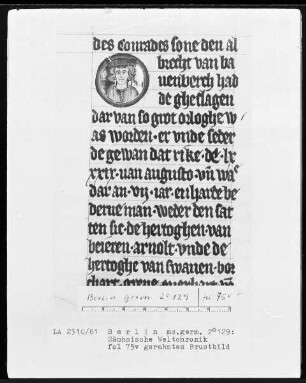 des Conrades sone den al
brecht van ba
uenberch had
de gheslagen
dar van so grot orloghe w
as worden. er vnde seder
de gewan dat rike. dc. lx
xxix. uan augusto. vn̄ wa͛
dar an. vij. iar. en harde be
derue man. weder den sat
ten sic. de hertoghen. van
beieren. arnolt. vnde de
hertoghe van swauen. bor
LA 2310/61 Berlin ms.germ. 2°129:
Sächsische Weltchronik
fol 75v gerahmtes Brustbild